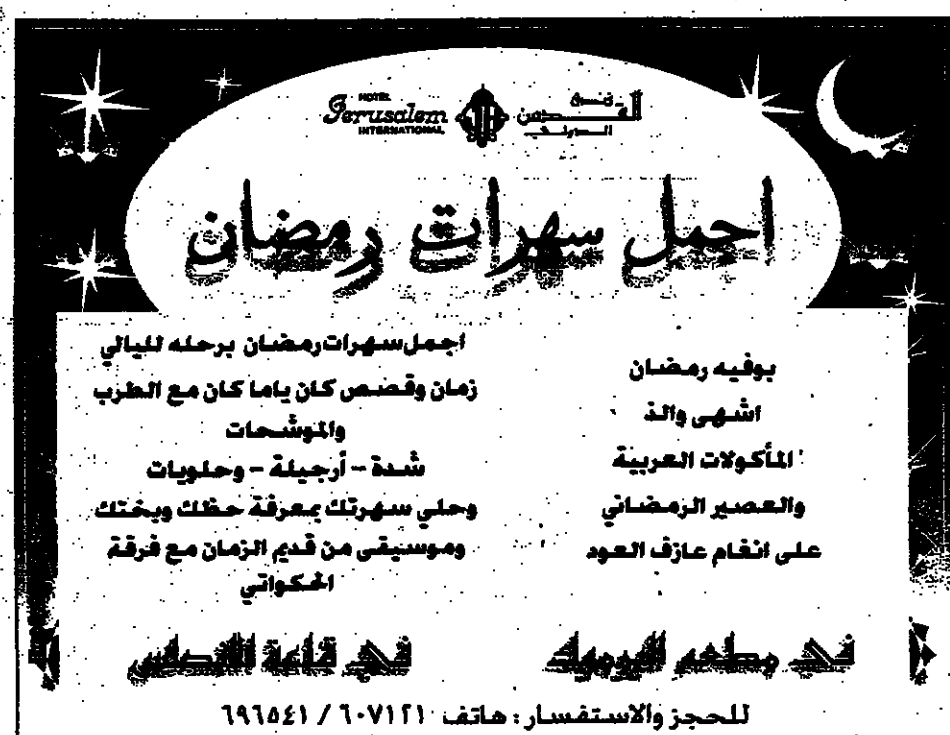 HOTEL
Jerusalem
INTERNATIONAL
فندق
القدس
الدولي
اجمل سهرات رمضان
بوفيه رمضان
اشهى والذ
المأكولات العربية
والعصير الرمضاني
على انغام عازف العود
في مطعم اليرموك
اجمل سهرات رمضان برحله لليالي
زمان وقصص كان ياما كان مع الطرب
والموشحات
شدة - أرجيلة - وحلويات
وحلي سهرتك بمعرفة حظك وبختك
وموسيقى من قديم الزمان مع فرقة
الحكواتي
في قاعة الاندلس
للحجز والاستفسار : هاتف ٦٠٧١٢١ / ٦٩٦٥٤١